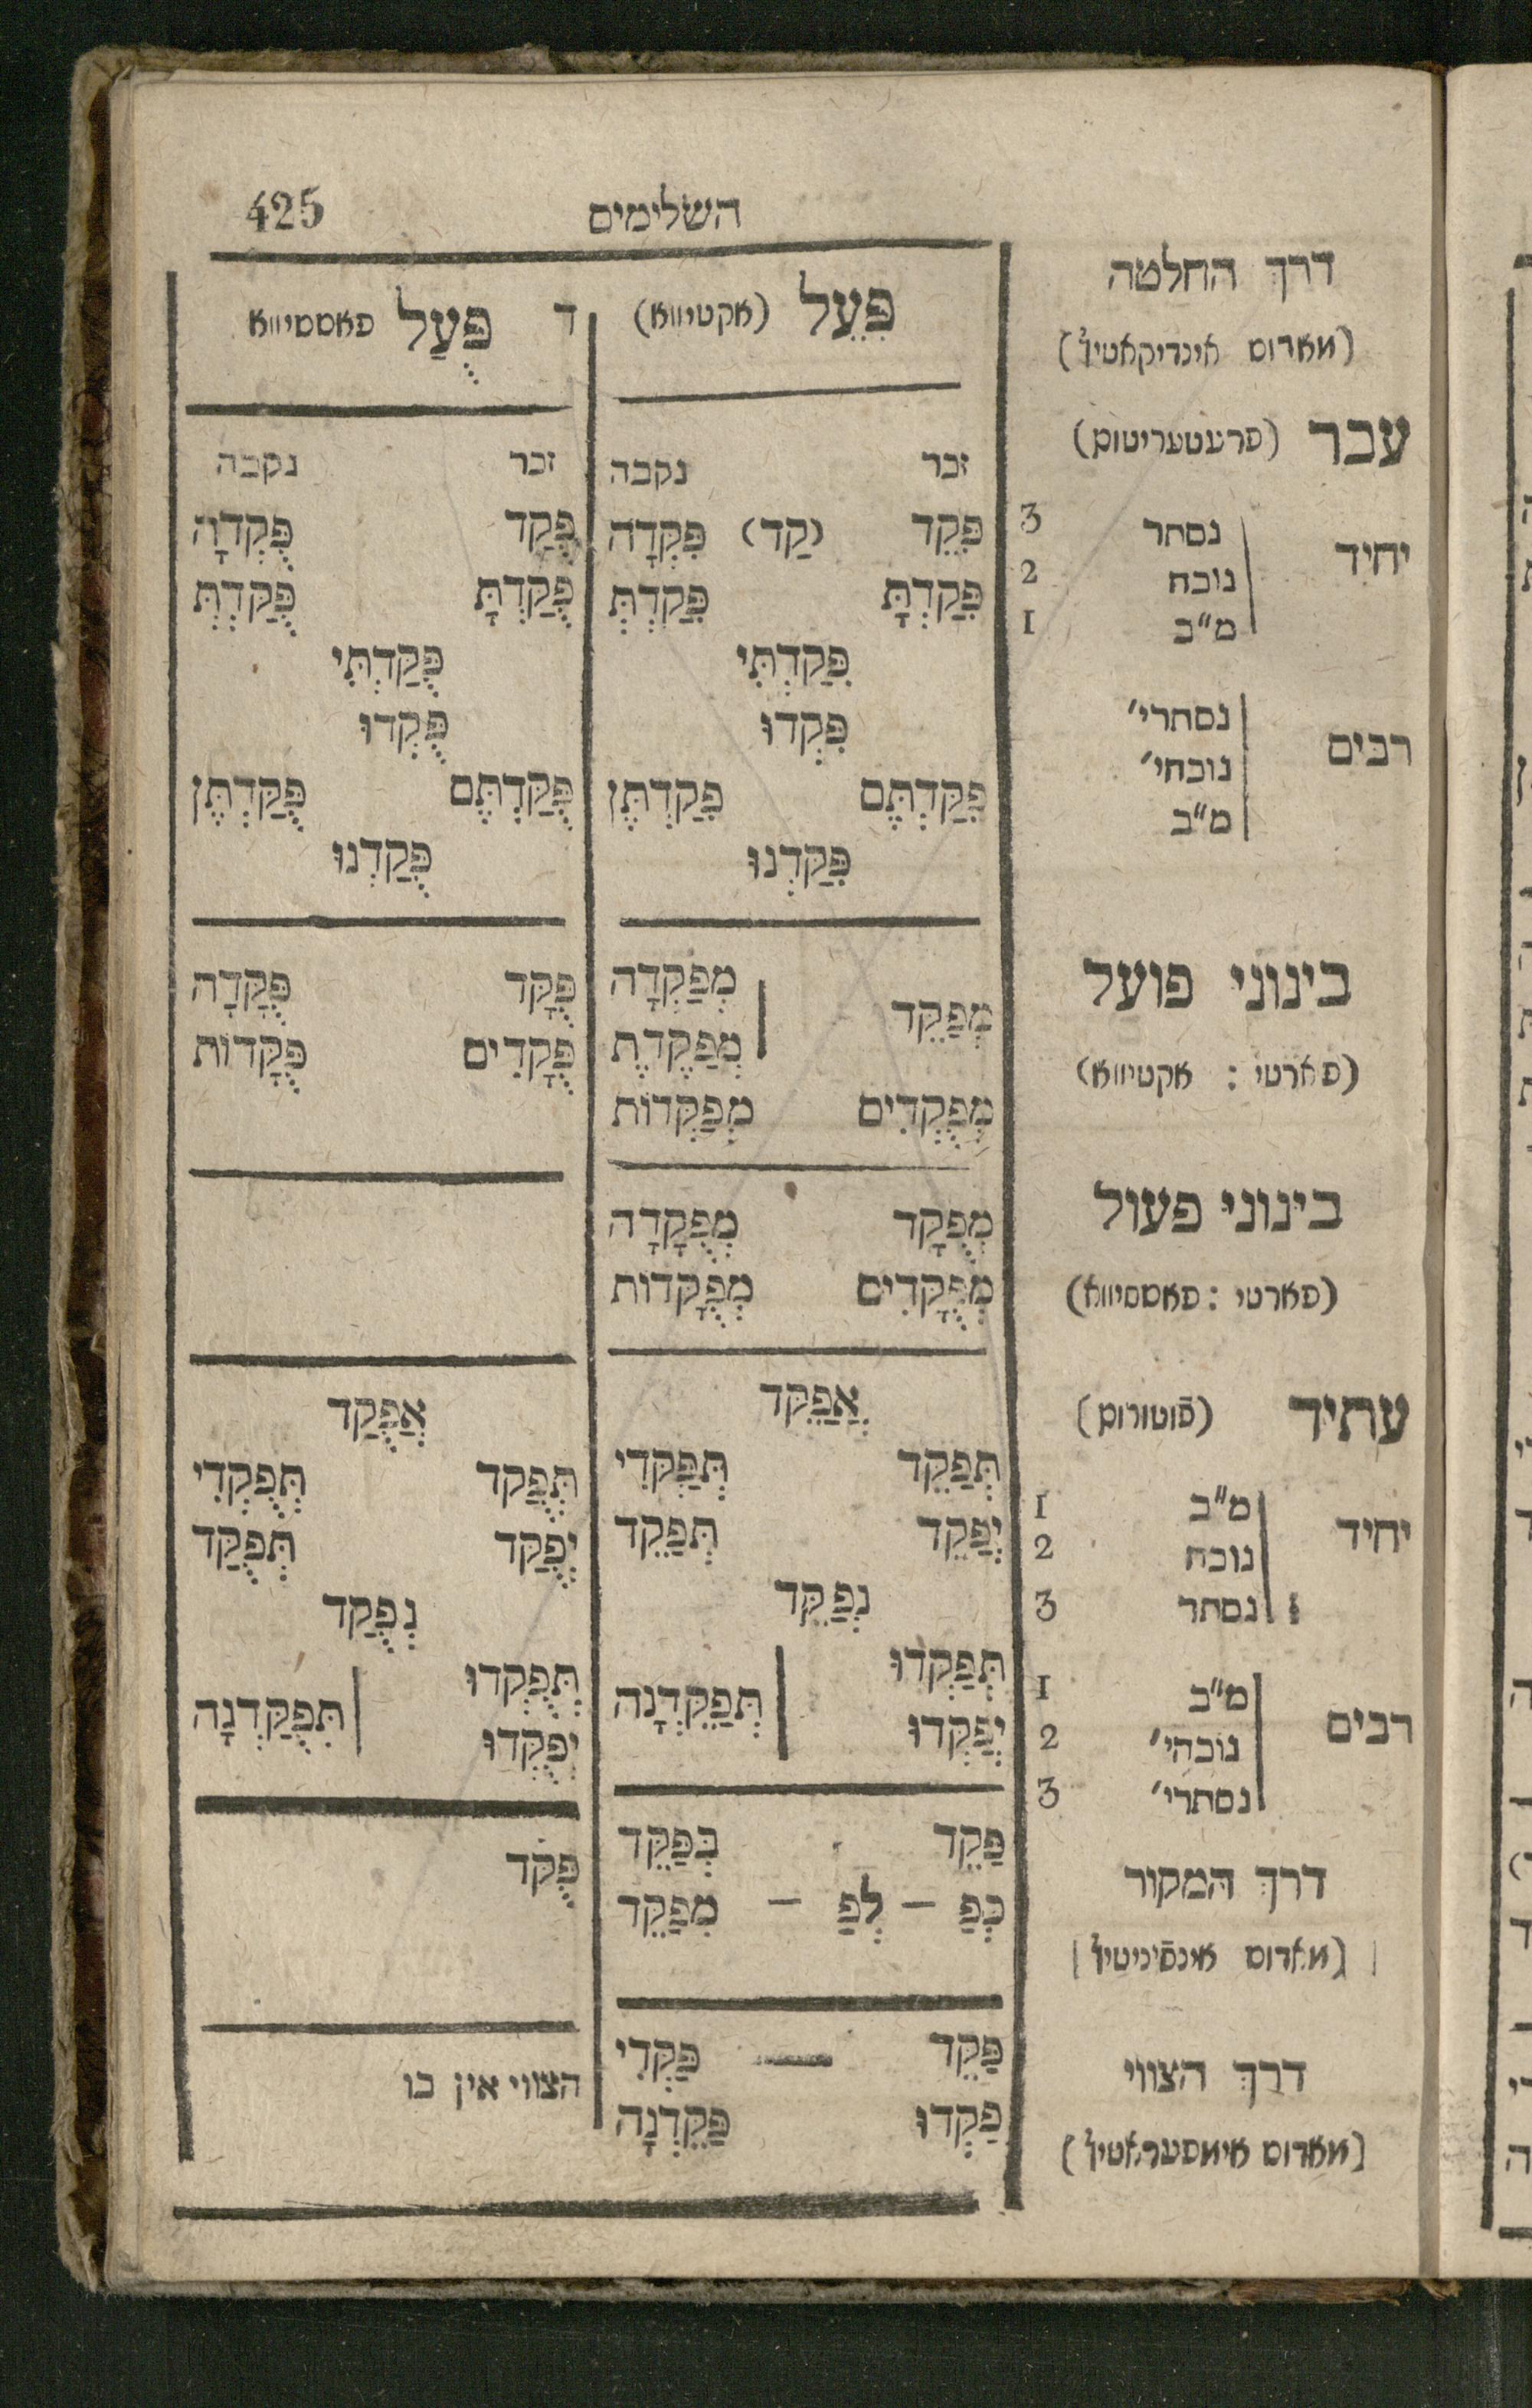 השלימים 425
דרך החלטה פִּעֵל (אקטיווא) ד פֻּעַל פאססיווא
(מאדוס אינדיקאטיף)
עבר (פרעטעריטום)
זכר נקבה זכר נקבה
יחיד נסתר 3 פִּקֵד (קַד) פִּקְּדָה פֻּקַד פֻּקְּדָה
נוכח 2 פִּקַּדְתָּ פִּקַּדְתְּ פֻּקַּדְתָּ פֻּקַּדְתְּ
מ"ב 1 פִּקַּדְתִּי פֻּקַּדְתִּי
רבים נסתרי' פִּקְּדוּ פֻּקְּדוּ
נוכחי' פִּקַּדְתֶּם פִּקַּדְתֶּן פֻּקַּדְתֶּם פֻּקַּדְתֶּן
מ"ב פִּקַּדְנוּ פֻּקַּדְנוּ
בינוני פועל מְפַקֵּד מְפַקְּדָה פֻּקָּד פֻּקָּדָה
מְפַקֶּדֶת פֻּקָּדִים פֻּקָּדוֹת
(פארטי : אקטיווא) מְפַקְּדִים מְפַקְּדוֹת
בינוני פעול מְפֻקָּד מְפֻקָּדָה
(פארטי : פאססיווא) מְפֻקָּדִים מְפֻקָּדוֹת
עתיד (פֿוטורום) אֲפַקֵּד אֲפֻקַּד
יחיד מ"ב 1 תְּפַקֵּד תְּפַקְּדִי תְּפֻקַּד תְּפֻקְּדִי
נוכח 2 יְפַקֵּד תְּפַקֵּד יְפֻקַּד תְּפֻקַּד
נסתר 3 נְפַקֵּד נְפֻקַּד
רבים מ"ב 1 תְּפַקְּדוּ תְּפַקֵּדְנָה תְּפֻקְּדוּ תְּפֻקַּדְנָה
נוכחי' 2 יְפַקְּדוּ יְפֻקְּדוּ
נסתרי' 3
דרך המקור פַּקֵּד בְּפַקֵּד פֻּקֹּד
כְּפַ – לְפַ – מִפַּקֵּד
(מאדוס אינפֿיניטיף)
דרך הצווי פַּקֵּד — פַּקְּדִי הצווי אין בו
פַּקְּדוּ פַּקֵּדְנָה
(מאדוס אימפעראטיף)